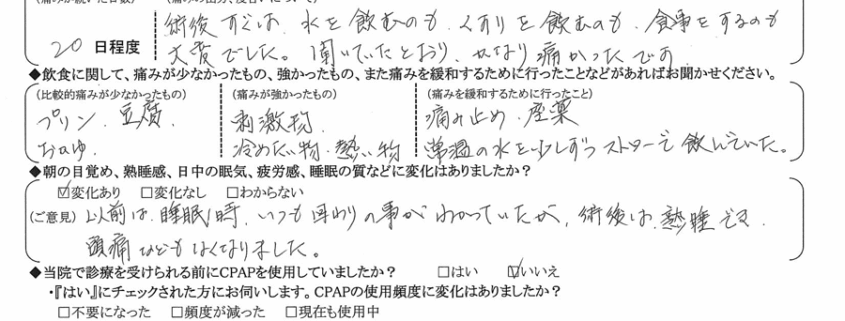 術後すぐは、水を飲むのも、くすりを飲むのも、食事をするのも
20 日程度 大変でした。聞いていたとおり、かなり痛かったです。
◆飲食に関して、痛みが少なかったもの、強かったもの、また痛みを緩和するために行ったことなどがあればお聞かせください。
(比較的痛みが少なかったもの) (痛みが強かったもの) (痛みを緩和するために行ったこと)
プリン、豆腐、 刺激物、 痛み止め、座薬
おかゆ、 冷めたい物・熱い物 常温の水を少しずつストローで飲んでいた。
◆朝の目覚め、熟睡感、日中の眠気、疲労感、睡眠の質などに変化はありましたか?
☑変化あり □変化なし □わからない
(ご意見) 以前は、睡眠時、いつも回わりの事がわかっていたが、術後は、熟睡でき、
頭痛などもなくなりました。
◆当院で診療を受けられる前にCPAPを使用していましたか? □はい ☑いいえ
・『はい』にチェックされた方にお伺いします。CPAPの使用頻度に変化はありましたか?
□不要になった □頻度が減った □現在も使用中